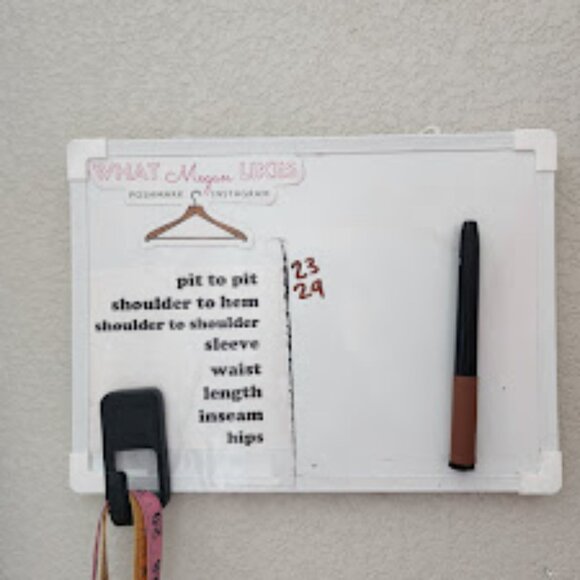 WHAT Megan LIKES
POSHMARK INSTAGRAM
pit to pit 23
shoulder to hem 29
shoulder to shoulder
sleeve
waist
length
inseam
hips